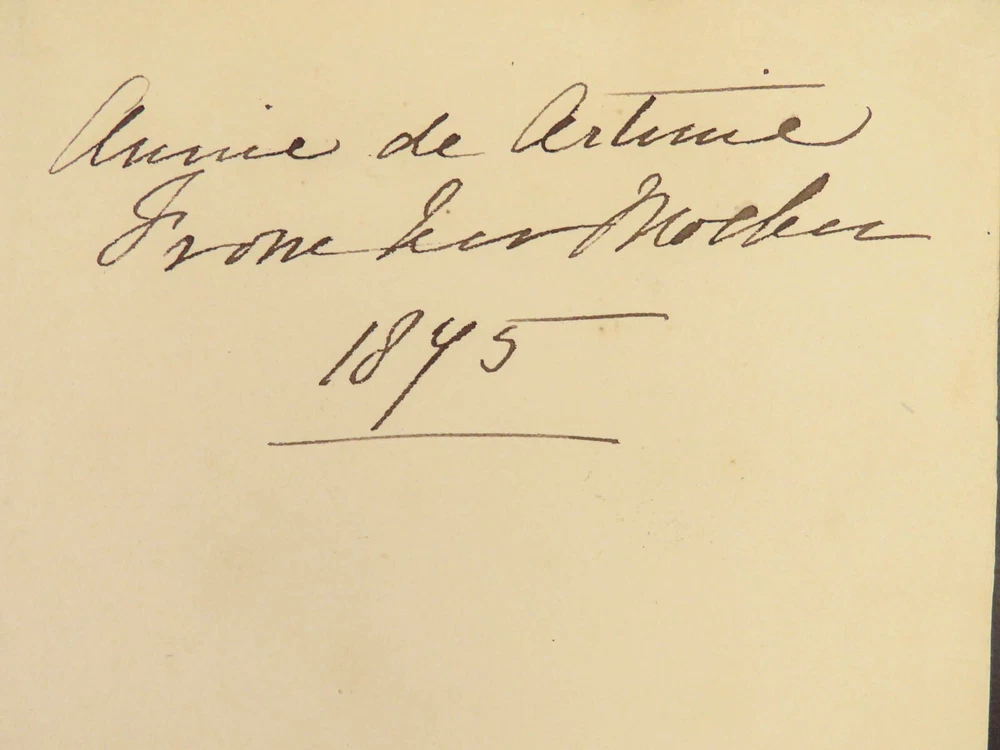 Annie de Artime
From her Mother
1875